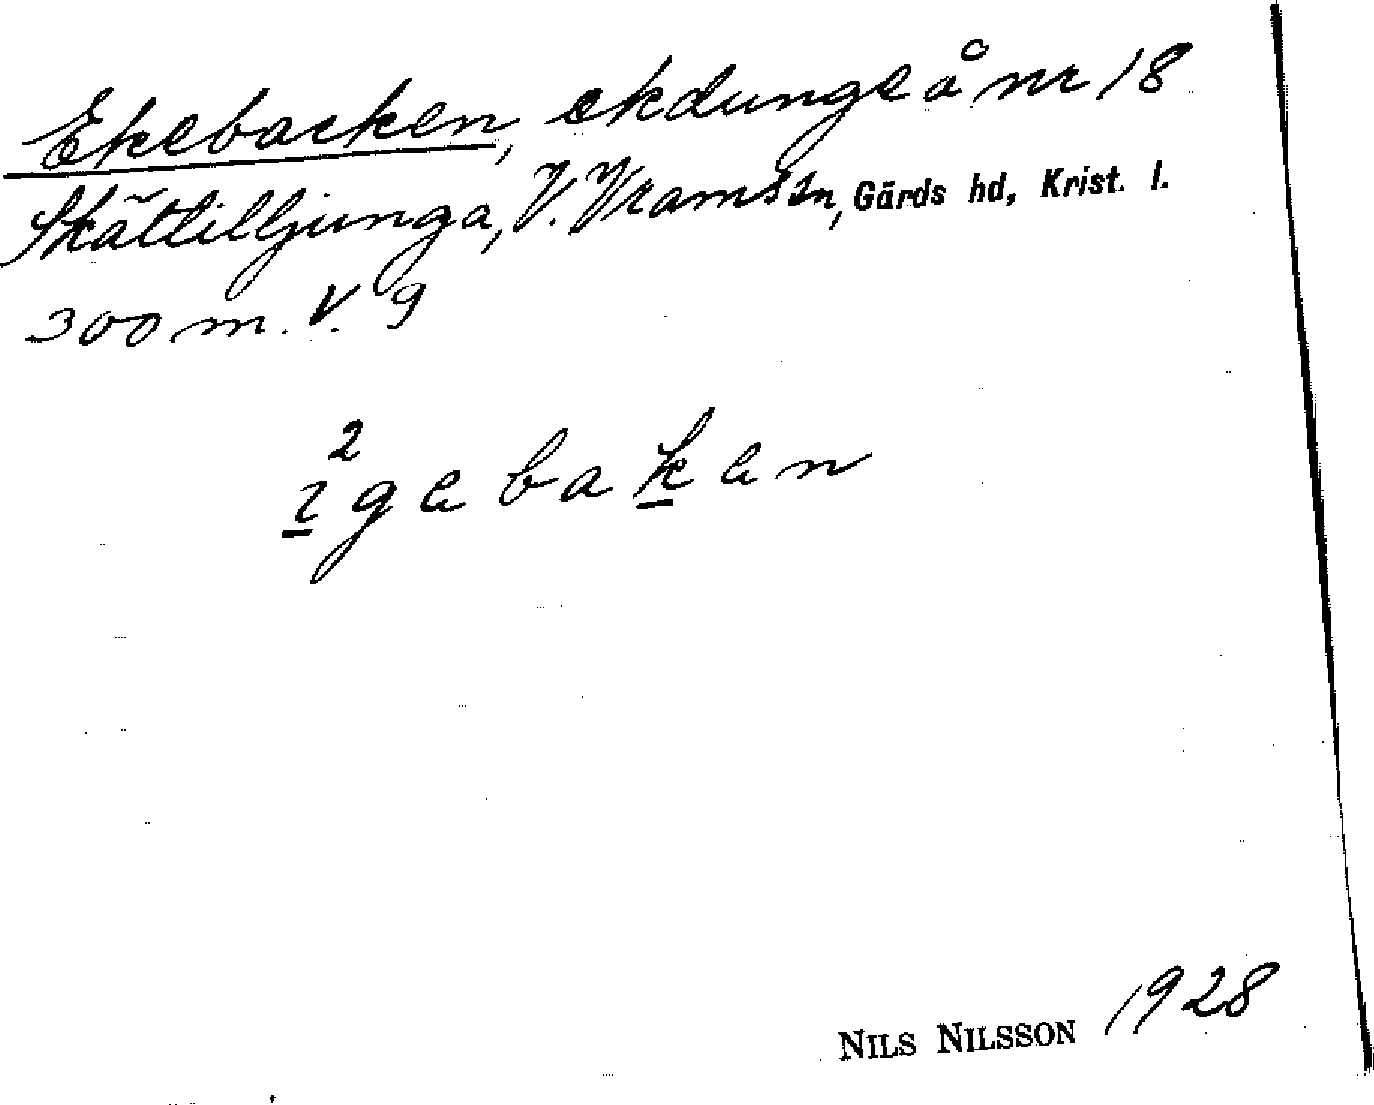 Ekebacken, ekdunge å nr 18
Skättilljunga, V. Vram sn, Gärds hd, Krist. l.
300 m. V. 9
2
ı̱gebaḵen
NILS NILSSON 1928